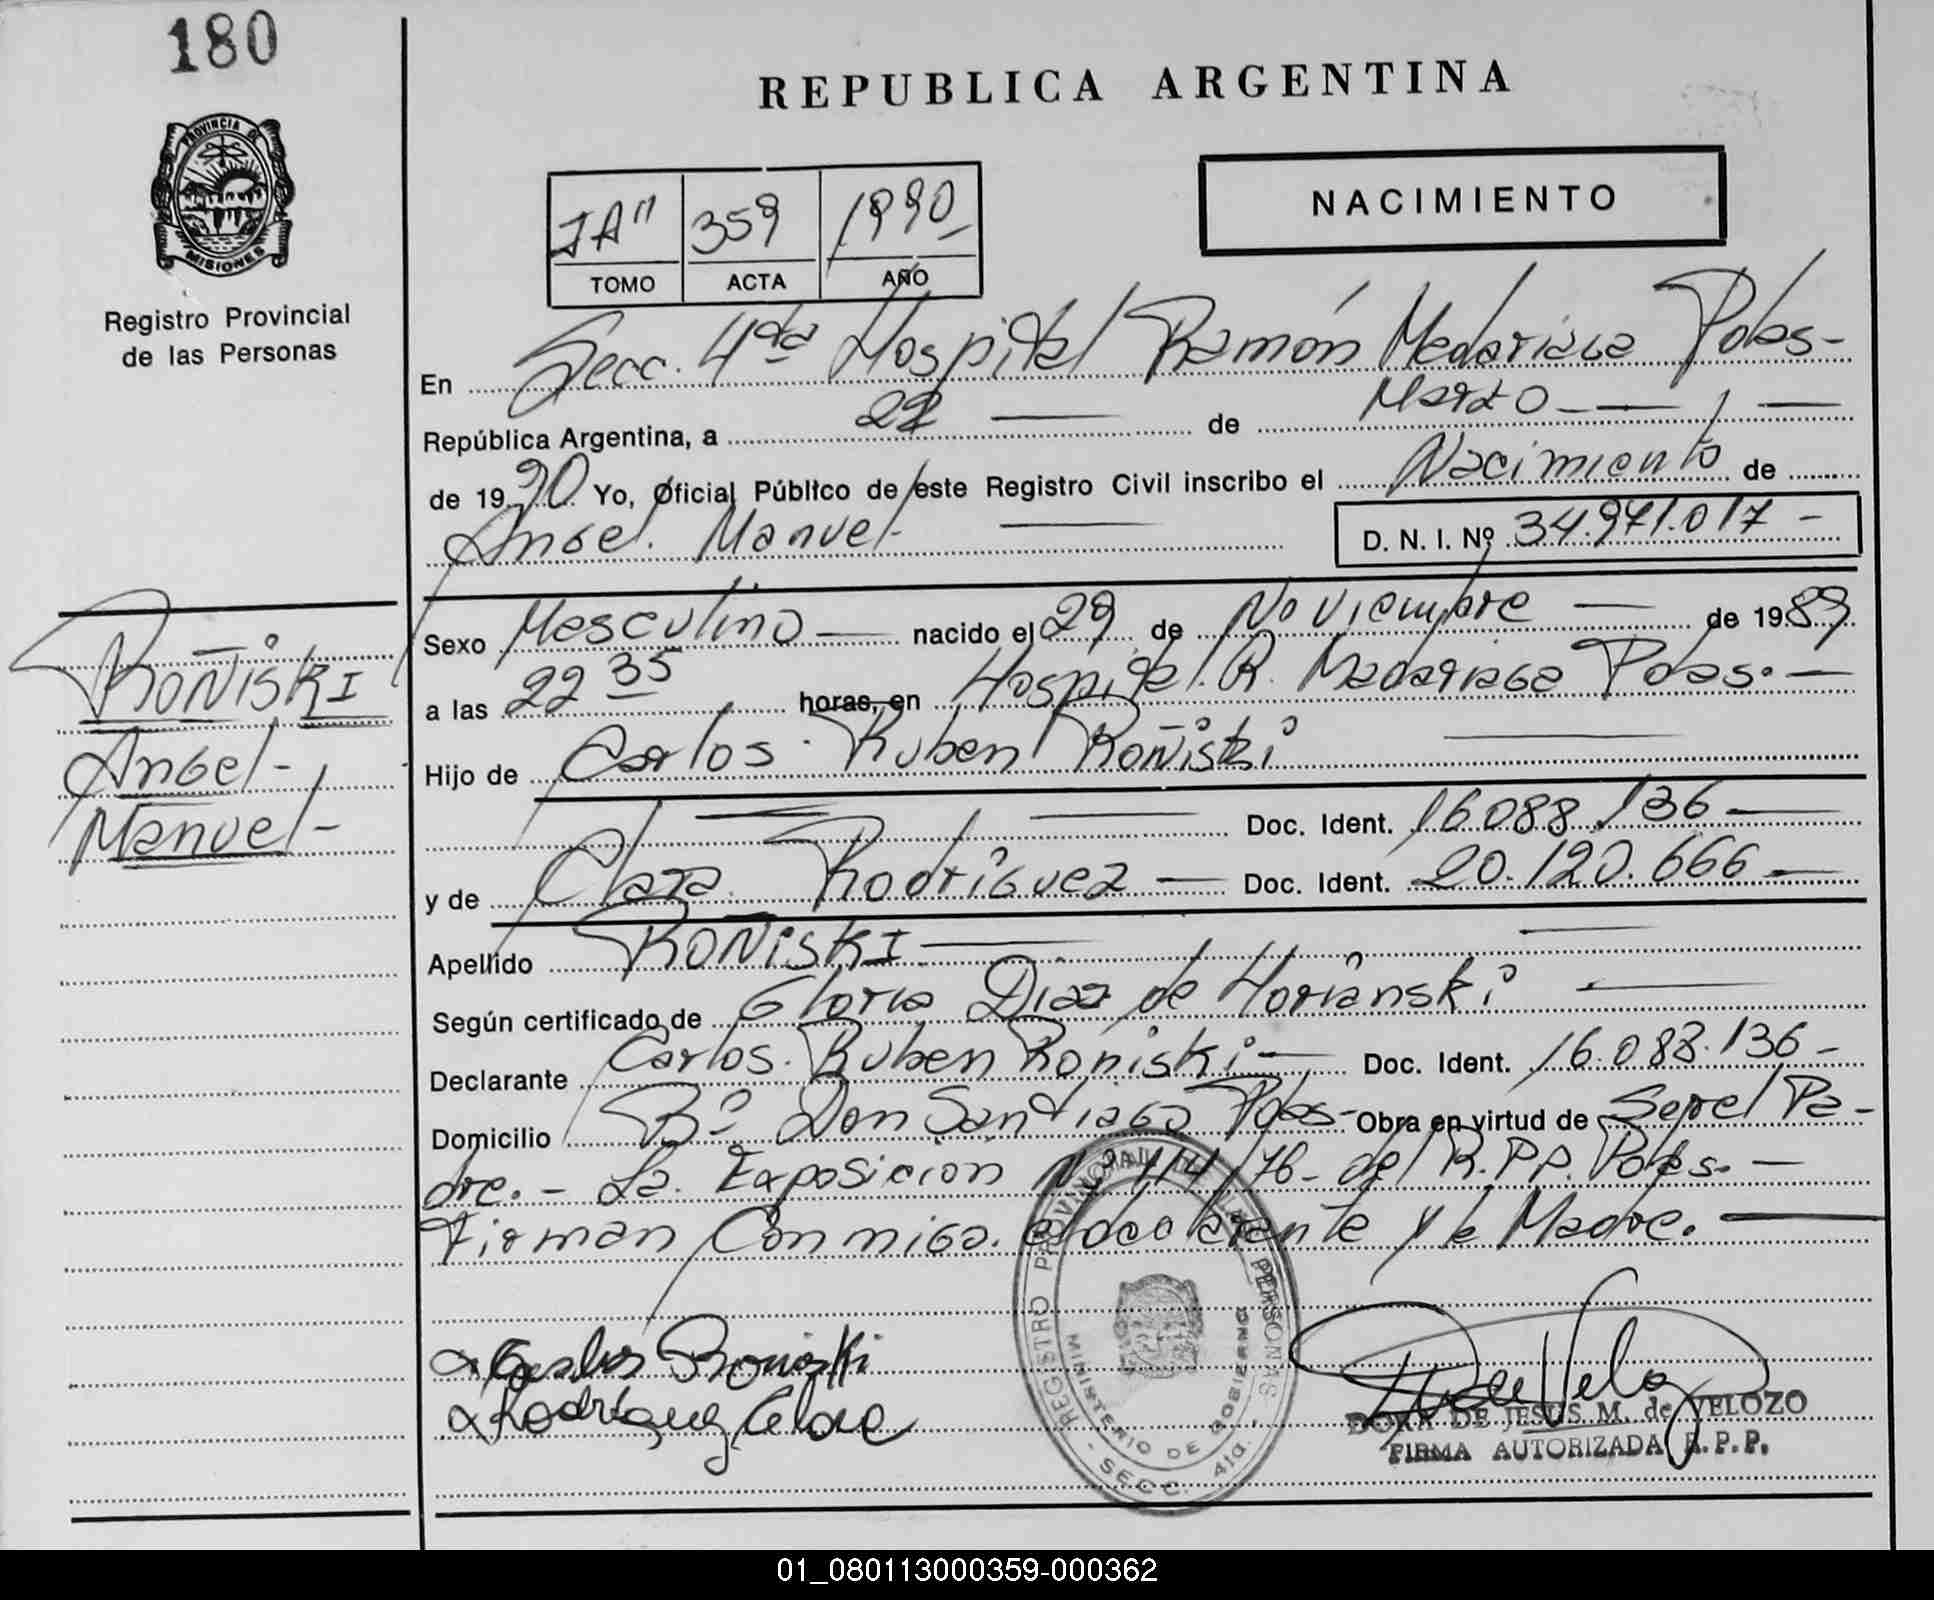 180
PROVINCIA DE
MISIONES
Registro Provincial
de las Personas
REPUBLICA ARGENTINA
NACIMIENTO
359 1990
TOMO ACTA AÑO
En Secc. 4ta Hospital Ramón Madariaga Pdas-
República Argentina, a 22 de Marzo
de 1990 Yo, Oficial Público de este Registro Civil inscribo el Nacimiento de
Angel Manuel- D. N. I. Nº 34.971.017-
ROÑISKI
Angel-
Manuel-
Sexo Masculino nacido el 29 de Noviembre de 1989
a las 22 35 horas, en Hospital R. Madariaga Pdas.-
Hijo de Carlos Ruben Roñiski
Doc. Ident. 16.088.136
y de Clara Rodriguez Doc. Ident. 20.120.666
Apellido ROÑISKI
Según certificado de Gloria Diaz de Horianski
Declarante Carlos Ruben Roñiski Doc. Ident. 16.088.136-
Domicilio Bº Don Santiago Pdas- Obra en virtud de Ser el Pa-
dre.- La Exposicion /76- del R.P.P. Pdas.-
Firman Conmigo el declarante y la Madre.
Carlos Roniski
Rodríguez Clara
REGISTRO PROVINCIAL DE LAS PERSONAS
MINISTERIO DE GOBIERNO
- SECC. 4ta.
DORA DE JESUS M. de VELOZO
FIRMA AUTORIZADA R.P.P.
01_080113000359-000362